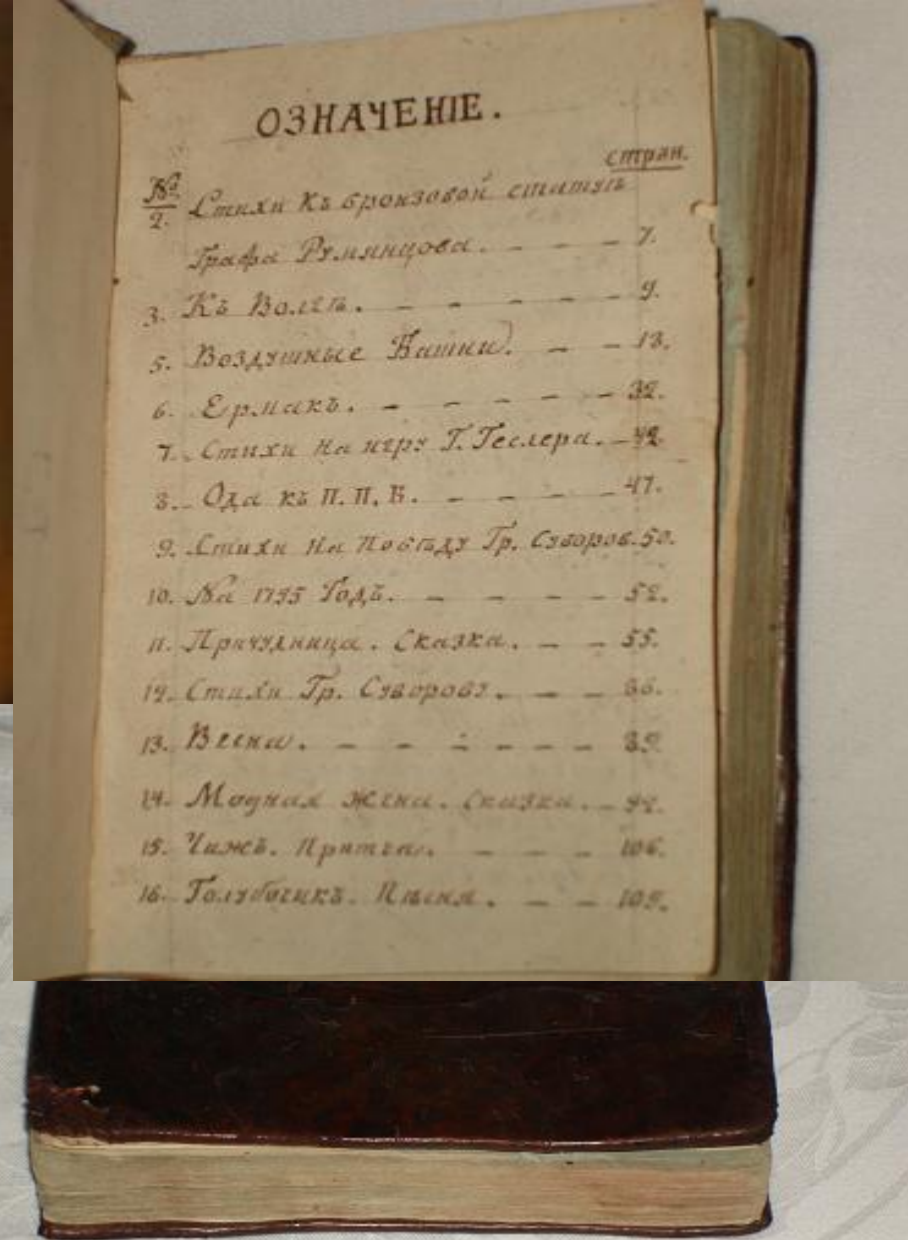 ОЗНАЧЕНІЕ.
стран.
№
2. Стихи Къ бронзовой статуѣ
Графа Румянцова. – – – 7.
3. Къ Волгѣ. – – – – – 9.
5. Воздушные Башни. – – 13.
6. Ермакъ. – – – – – 32.
7. Стихи На игру Г. Геслера. – 42.
8. Ода къ П. П. Б. – – – – 47.
9. Стихи На Побѣду Гр. Суворов. 50.
10. На 1795 Годъ. – – – – 52.
11. Причудница. Сказка. – – 55.
12. Стихи Гр. Суворову. – – – 86.
13. Весна. – – – – – – 89.
14. Модная Жена. Сказка. – 92.
15. Чижъ. Притча. – – – 106.
16. Голубочикъ. Пѣсня. – – – 109.